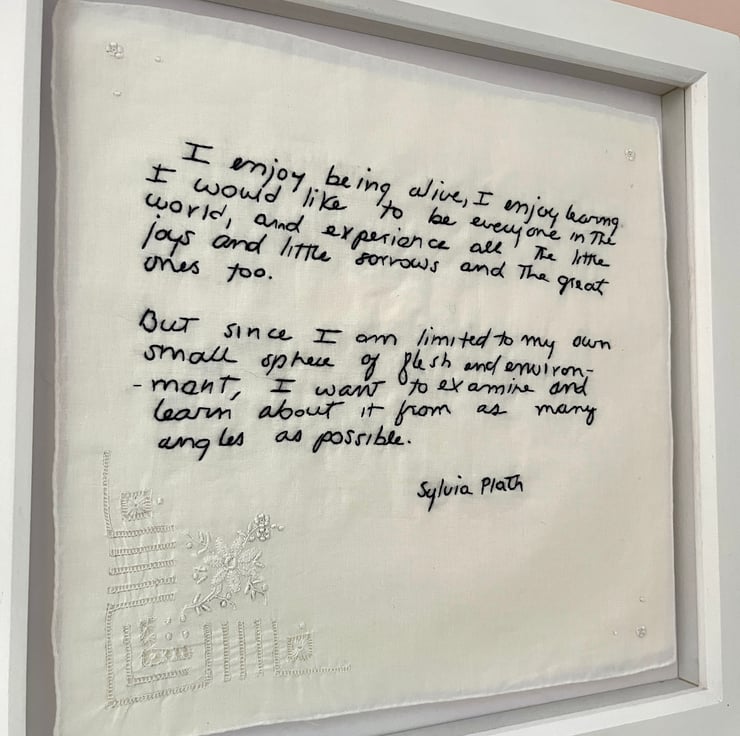 I enjoy being alive, I enjoy learning
I would like to be everyone in The
world, and experience all The little
joys and little sorrows and The great
ones too.
But since I am limited to my own
small sphere of flesh and environ-
-mant, I want to examine and
learn about it from as many
angles as possible.
Sylvia Plath